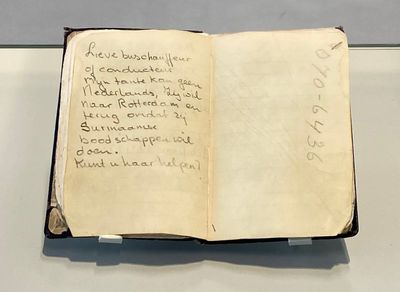 Lieve buschauffeur
of conducteur
Mijn tante kan geen
Nederlands, Zij wil
naar Rotterdam en
terug omdat zij
Surinaamse
boodschappen wil
doen.
Kunt u haar helpen?
070-6436